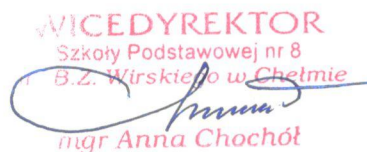 WICEDYREKTOR
Szkoły Podstawowej nr 8
B.Z. Wirskiego w Chełmie
mgr Anna Chochół